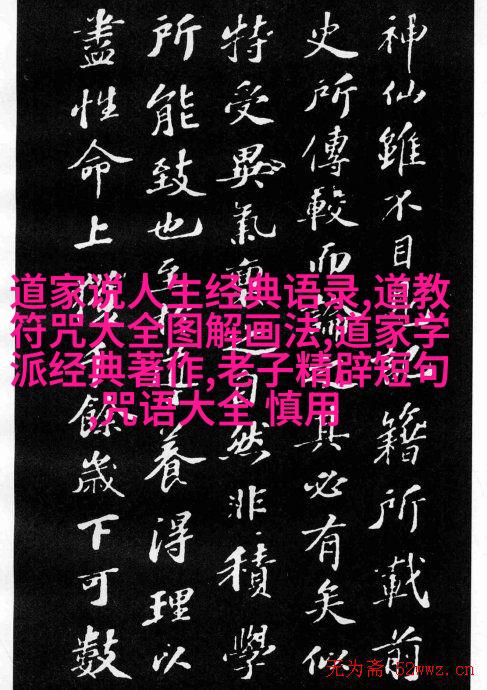 神仙雖不目籍所載前
史所傳較而論其必有矣似
特受異氣自然非積學
所能致也至養得理以
盡性命上餘歲下可數
道家说人生经典语录,道教
符咒大全图解画法,道家学
派经典著作,老子精辟短句
,咒语大全 慎用
无为斋·52wwz.cn